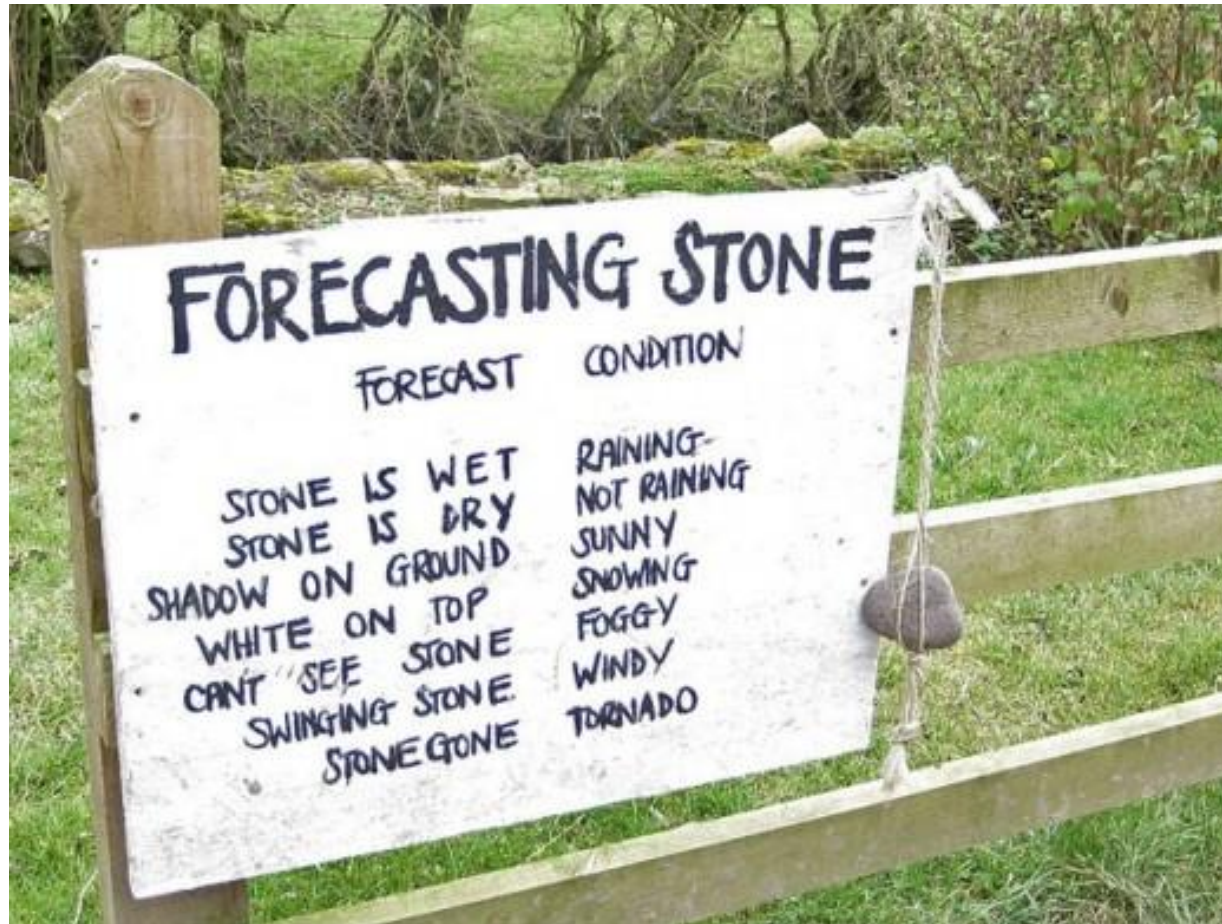 FORECASTING STONE
FORECAST CONDITION
STONE IS WET RAINING
STONE IS DRY NOT RAINING
SHADOW ON GROUND SUNNY
WHITE ON TOP SNOWING
CAN'T SEE STONE FOGGY
SWINGING STONE WINDY
STONE GONE TORNADO